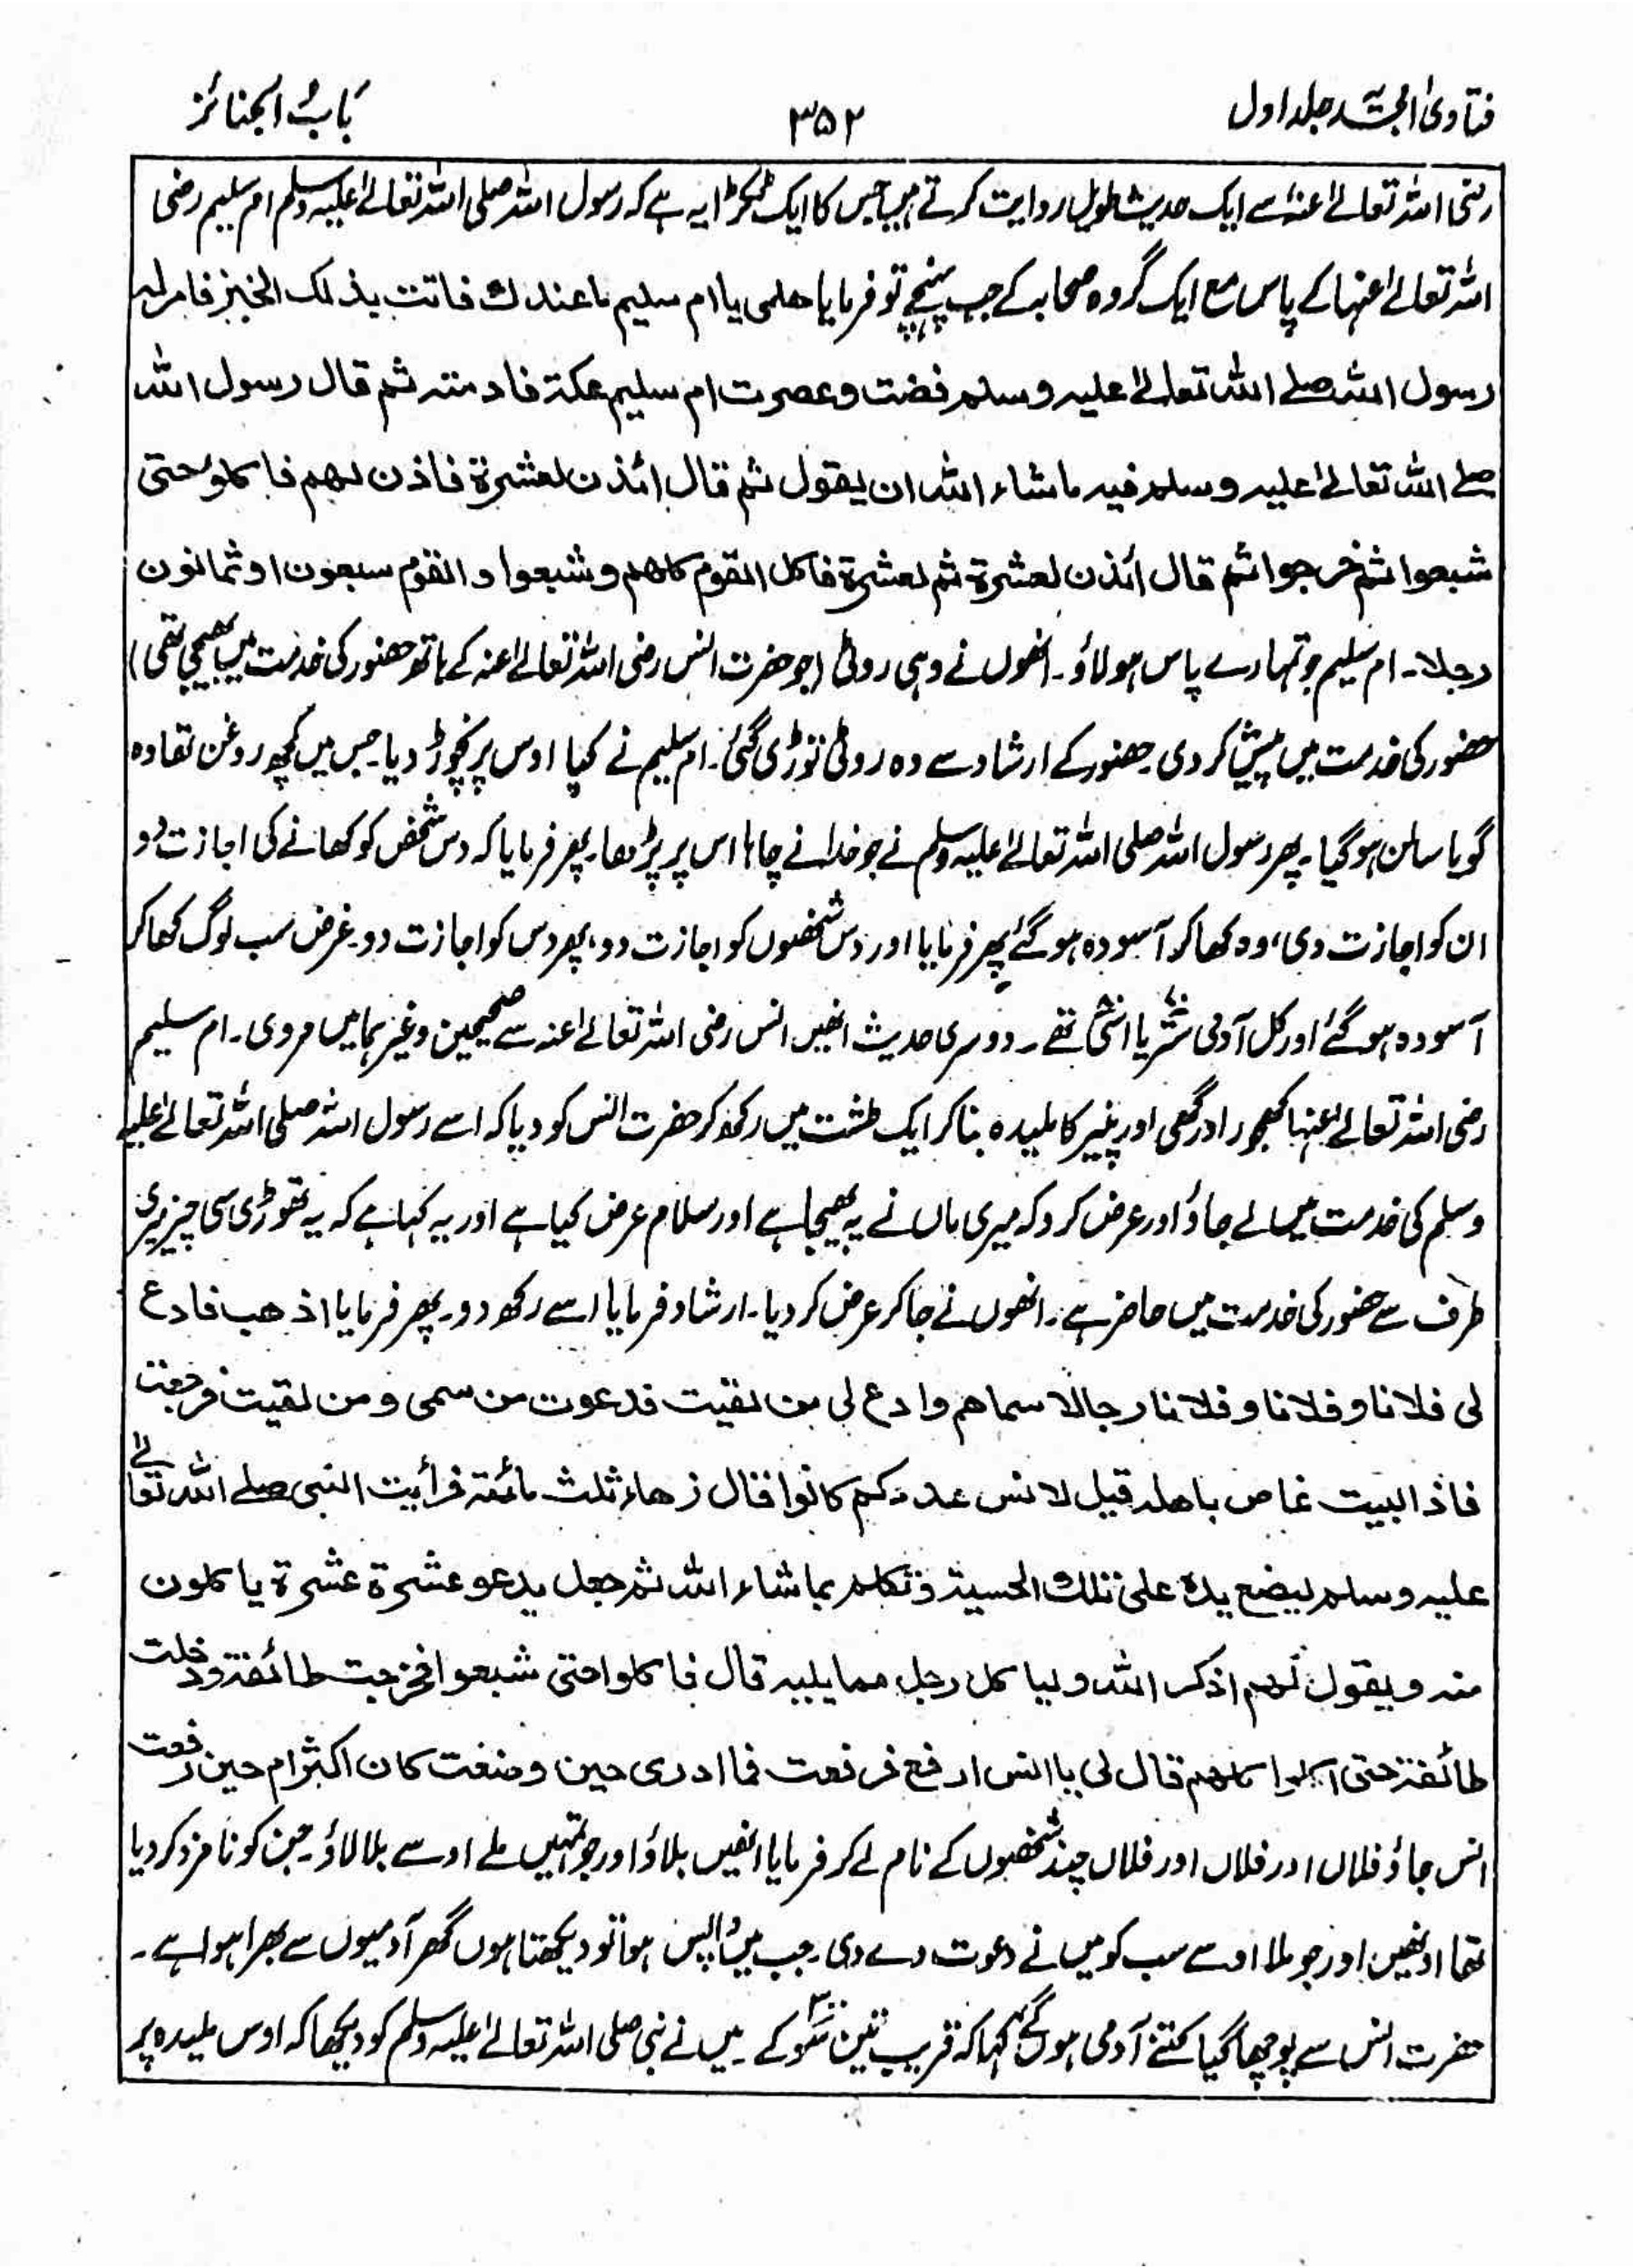 فتاویٰ امجدیہ جلد اول
۳۵۲
کتاب الجنائز
رضی اللہ تعالےٰ عنہ سے ایک حدیث طویل روایت کرتے ہیں جس کا ایک ٹکڑا یہ ہے کہ رسول اللہ صلی اللہ تعالےٰ علیہ وسلم ام سلیم رضی
اللہ تعالےٰ عنہا کے پاس مع ایک گروہ صحابہ کے جب پہنچے تو فرمایا ھلمی یا ام سلیم ما عندك فاتت بذلك الخبز فامر لہ
رسول اللہ صلے اللہ تعالےٰ علیہ وسلم ففت وعصرت ام سلیم عکۃ فادمتہ ثم قال رسول اللہ
صلے اللہ تعالےٰ علیہ وسلم فیہ ماشاء اللہ ان یقول ثم قال ائذن لعشرۃ فاذن لھم فاکلو حتی
شبعوا ثم خرجوا ثم قال ائذن لعشرۃ ثم لعشرۃ فاکل القوم کلھم وشبعوا والقوم سبعون او ثمانون
رجلا۔ ام سلیم جو تمہارے پاس ہو لاؤ۔ انھوں نے وہی روٹی (جو حضرت انس رضی اللہ تعالےٰ عنہ کے ہاتھ حضور کی خدمت میں بھیجی تھی)
حضور کی خدمت میں پیش کر دی۔ حضور کے ارشاد سے وہ روٹی توڑی گئی۔ ام سلیم نے کپا اوس پر نچوڑ دیا۔ جس میں کچھ روغن تھا وہ
گویا سالن ہو گیا۔ پھر رسول اللہ صلی اللہ تعالےٰ علیہ وسلم نے جو خدا نے چاہا اس پر پڑھا۔ پھر فرمایا کہ دس شخص کو کھانے کی اجازت دو
ان کو اجازت دی، وہ کھا کر آسودہ ہو گئے پھر فرمایا اور دس شخصوں کو اجازت دو، پھر دس کو اجازت دو۔ غرض سب لوگ کھا کر
آسودہ ہو گئے اور کل آدمی ستر یا اسّی تھے ۔ دوسری حدیث انھیں انس رضی اللہ تعالےٰ عنہ سے صحیحین وغیرہما میں مروی۔ ام سلیم
رضی اللہ تعالےٰ عنہا کھجور اور گھی اور پنیر کا ملیدہ بنا کر ایک طشت میں رکھ کر حضرت انس کو دیا کہ اسے رسول اللہ صلی اللہ تعالےٰ علیہ
وسلم کی خدمت میں لے جاؤ اور عرض کر دو کہ میری ماں نے یہ بھیجا ہے اور سلام عرض کیا ہے اور یہ کہا ہے کہ یہ تھوڑی سی چیز میری
طرف سے حضور کی خدمت میں حاضر ہے۔ انھوں نے جا کر عرض کر دیا۔ ارشاد فرمایا اسے رکھ دو۔ پھر فرمایا اذھب فادع
لی فلانا وفلانا وفلانا رجالا سماھم وادع لی من لقیت فدعوت من سمی ومن لقیت فرجعت
فاذا البیت غاص باھلہ قیل لانس عددکم کانوا قال زھاء ثلث مائۃ فرأیت النبی صلے اللہ تعالےٰ
علیہ وسلم یضع یدہ علی تلك الحسیۃ وتکلم بماشاء اللہ ثم جعل یدعو عشرۃ عشرۃ یاکلون
منہ ویقول لھم اذکر اللہ ولیاکل رجل ممایلیہ قال فاکلوا حتی شبعوا فخرجت طائفۃ ودخلت
طائفۃ حتی اکلوا کلھم قال لی یا انس ارفع فرفعت فما ادری حین وضعت کان اکثر ام حین رفعت
انس جاؤ فلاں اور فلاں اور فلاں چند شخصوں کے نام لے کر فرمایا انھیں بلاؤ اور جو تمہیں ملے اوسے بلا لاؤ۔ جن کو نامزد کر دیا
تھا اونھیں اور جو ملا اوسے سب کو میں نے دعوت دے دی۔ جب میں واپس ہوا تو دیکھتا ہوں گھر آدمیوں سے بھرا ہوا ہے ۔
حضرت انس سے پوچھا گیا کتنے آدمی ہوں گے کہا کہ قریب تین سو ۳۰۰ کے ۔ میں نے نبی صلی اللہ تعالےٰ علیہ وسلم کو دیکھا کہ اوس ملیدہ پر